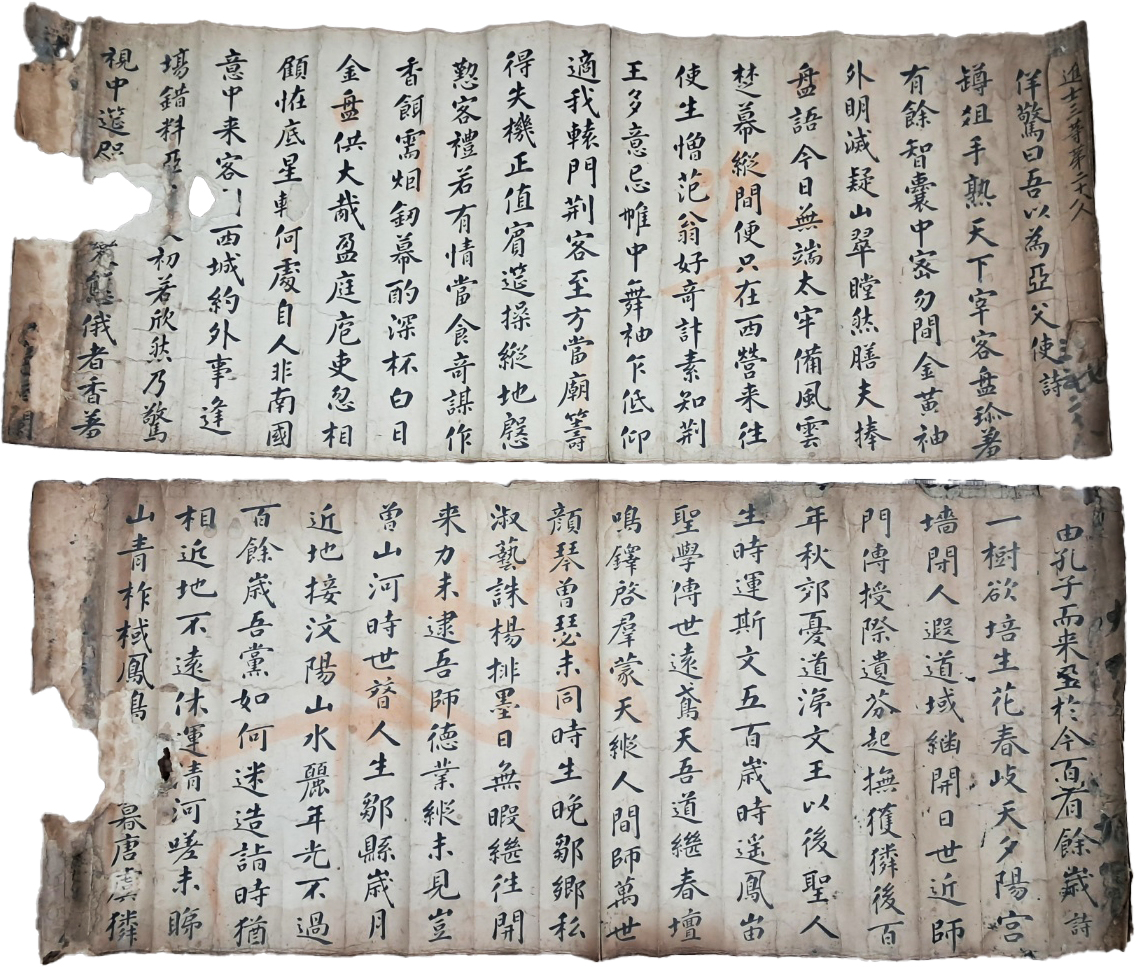 進士三等第二十人
佯驚曰吾以為亞父使詩
罇俎手熟天下宰客盤珎羞
有餘智囊中密勿間金黃袖
外明滅疑山翠瞠然膳夫捧
盘語今日無端太牢備風雲
楚幕縱間便只在西營来徃
使生憎范翁好竒計素知荆
王多意忌帷中舞袖乍低仰
適我轅門荆客至方當廟籌
得失機正值賓筵操縱地慇
懃客禮若有情當食竒謀作
香餌需烟釰幕酌深杯白日
金盘供大胾盈庭庖吏忽相
顧恠底星軺何處自人非南國
意中来客 西城約外事逢
塲錯料亞 人初若欣然乃驚
視中筵 俄者香羞
由孔子而来至於今百有餘歲詩
一樹欲培生花春歧天夕陽宮
墻閉人遐道域継開日世近師
門傳授際遺芬起撫獲獜後百
年秋郊憂道涕文王以後聖人
生時運斯文五百歲時遥鳳峀
聖學傳世遠鳶天吾道継春壇
鳴鐸啓羣蒙天縱人間師萬世
顔琴曾瑟未同時生晚鄒鄉私
淑藝誅楊排墨日無暇継徃開
来力未逮吾師德業縱未見豈
曾山河時世暌人生鄒縣歲月
近地接汶陽山水麗年光不過
百餘歲吾黨如何迷造詣時猶
相近地不遠休運清河嗟未睇
山青柞棫鳳鳥 暮唐虞獜